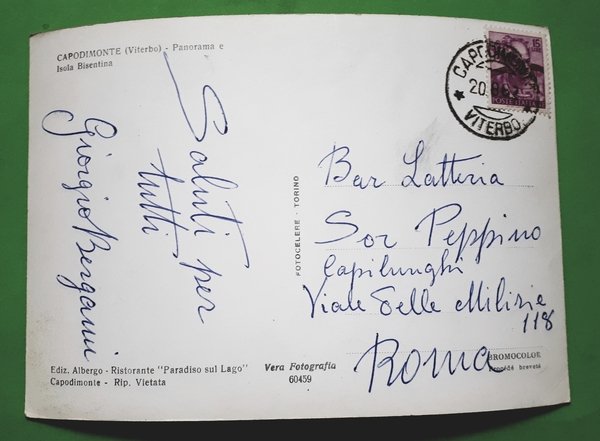 CAPODIMONTE (Viterbo) - Panorama e
Isola Bisentina
Saluti per
tutti
Giorgio Bergami
Ediz. Albergo - Ristorante "Paradiso sul Lago"
Capodimonte - Rip. Vietata
Vera Fotografia
60459
FOTOCELERE - TORINO
15
POSTE ITALIANE
CAPODIMONTE
VITERBO
Bar Latteria
Sor Peppino
Capilunghi
Viale delle Milizie
118
Roma
BROMOCOLOR
procédé breveté